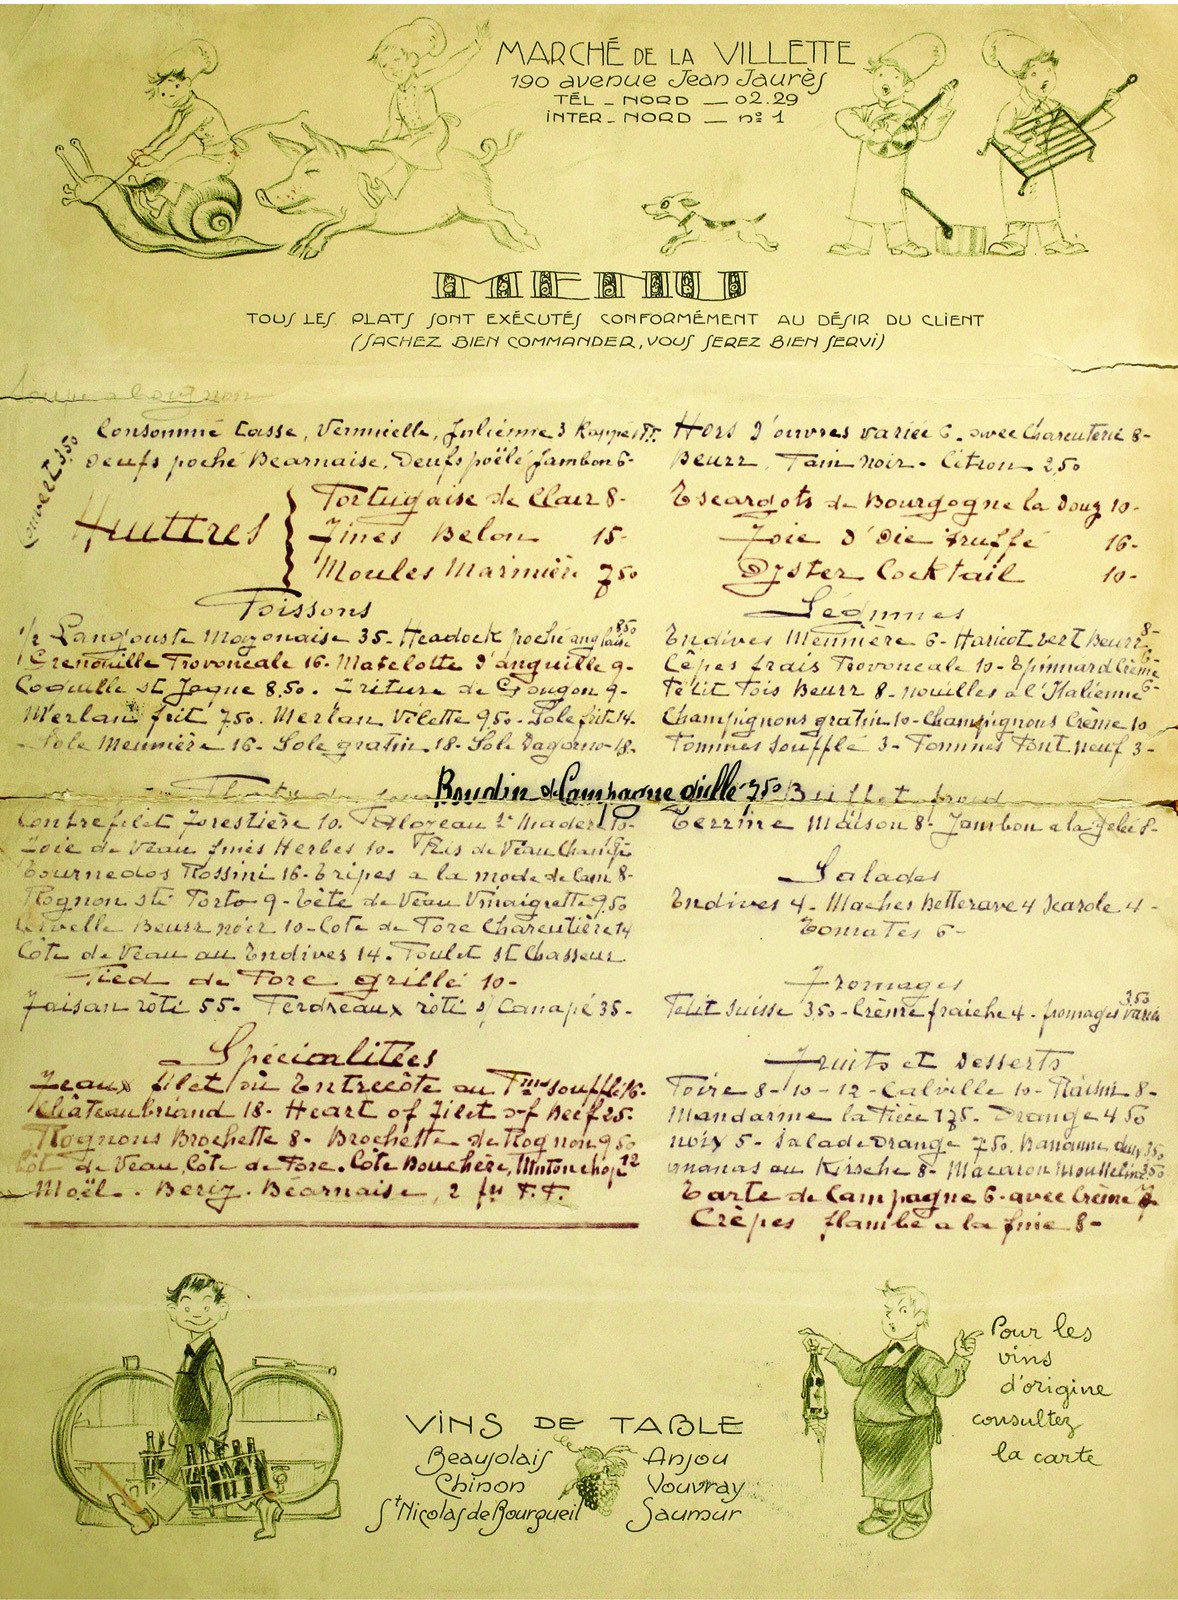 MARCHÉ DE LA VILLETTE
190 avenue Jean Jaurès
TÉL - NORD — 02.29
INTER - NORD — nº 1
MENU
TOUS LES PLATS SONT EXÉCUTÉS CONFORMÉMENT AU DÉSIR DU CLIENT
(SACHEZ BIEN COMMANDER, VOUS SEREZ BIEN SERVI)
Couvert 3,50
Consommé Tasse, Vermicelle, Julienne 3
Oeufs poché Béarnaise, Oeufs poëlé Jambon 6-
Huîtres
Portugaise de Clair 8-
Fines Belon 15-
Moules Marinière 7 50
Poissons
1/2 Langouste Mayonaise 35- Headock poché anglaise 8 50
Grenouille Provonceale 16- Matelotte d'anguille 9-
Coquille St Jaque 8,50. Friture de Goujon 9-
Merlan frit 7 50. Merlan Vilette 9 50- Sole frit 14-
Sole Meunière 16- Sole gratin 18- Sole Dagorno 18-
Contrefilet Forestière 10.
Foie de Veau fines Herbes 10- Ris de Veau
Tournedos Rossini 16- Tripes a la mode de Caen 8-
Rognon sté Porto 9- Tête de Veau Vinaigrette 9,50
Cervelle Beurr noir 10- Cote de Porc Charcutière 14
Côte de Veau au Endives 14- Poulet st Chasseur
Pied de Porc grillé 10-
Faisan rôti 55- Perdreaux rôti s/ Canapé 35-
Spécialitées
Feaux filet ou Entrecôte au Pme soufflé 16-
Châteaubriand 18- Heart of Filet of Beef 25-
Rognons Brochette 8- Brochette de Rognon 9 50
Côt de Veau, Côte de Porc. Côte Bouchère, Muton chop 12
Moël. Bercy. Béarnaise, 2
Hors d'ouvres variée 6. avec Charcuterie 8-
Beurr, Pain noir- Citron- 2,50
Escargots de Bourgogne la Douz 10-
Foie d'Oie truffé 16-
Oyster Cocktail 10-
Légumes
Endives Meunière 6- Haricot vert Beurr 8-
Cêpes frais Provonceale 10- Epinnard Crème
Petit Pois Beurr 8- nouilles a l'Italienne 6-
Champignons gratin 10- Champignons Crème 10
Pommes Soufflé 3- Pommes Pont neuf 3-
Boudin de Campagne grillé 7 50 Buffet froid
Terrine Maison 8- Jambon a la Gelé 8-
Salades
Endives 4- Maches Betterave 4 Scarole 4-
Tomates 6-
Fromages
Petit Suisse 3 50- Crème fraiche 4- fromages varié 3,50
Fruits et Desserts
Poire 8-10-12- Calville 10- Raisin 8-
Mandarine la Pièce 1 75- Orange 4 50
noix 5- Salade Orange 7 50. Bananne deux 3 50
ananas au Kirsche 8- Macaron Mousseline 3 50
Tarte de Campagne 6- avec Crème
Crêpes flambé a la fine 8-
VINS DE TABLE
Beaujolais Anjou
Chinon Vouvray
St Nicolas de Bourgueil Saumur
Pour les
vins
d'origine
consultez
la carte